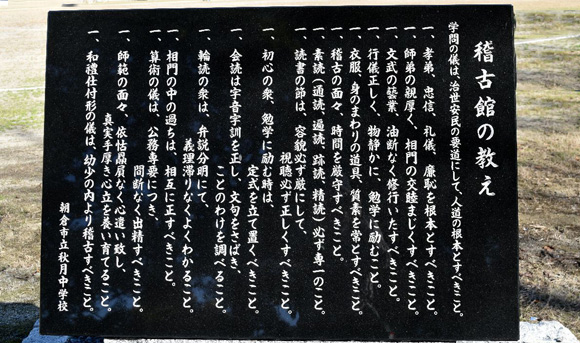 稽古館の教え
学問の儀は、治世安民の要道にして、人道の根本とすべきこと。
一、孝弟、忠信、礼儀、廉恥を根本とすべきこと。
一、師弟の親厚く、相門の交睦まじくすべきこと。
一、文武の藝業、油断なく修行いたすべきこと。
一、行儀正しく、物静かに、勉学に励むこと。
一、衣服、身のまわりの道具、質素を常とすべきこと。
一、稽古の面々、時間を厳守すべきこと。
一、素読（通読、遍読、跡読、精読）必ず専一のこと。
一、読書の節は、容貌必ず厳にして、
視聴必ず正しくすべきこと。
一、初心の衆、勉学に励む時は、
定式を立て置くべきこと。
一、会読は字音字訓を正し、文句をさばき、
ことのわけを調べること。
一、輪読の衆は、弁説分明にて、
義理滞りなくよくわかること。
一、相門の中の過ちは、相互に正すべきこと。
一、算術の儀は、公務専要につき、
間断なく出精すべきこと。
一、師範の面々、依怙贔屓なく心遣い致し、
真実手厚き心立を養い育てること。
一、和禮仕付形の儀は、幼少の内より稽古すべきこと。
朝倉市立秋月中学校